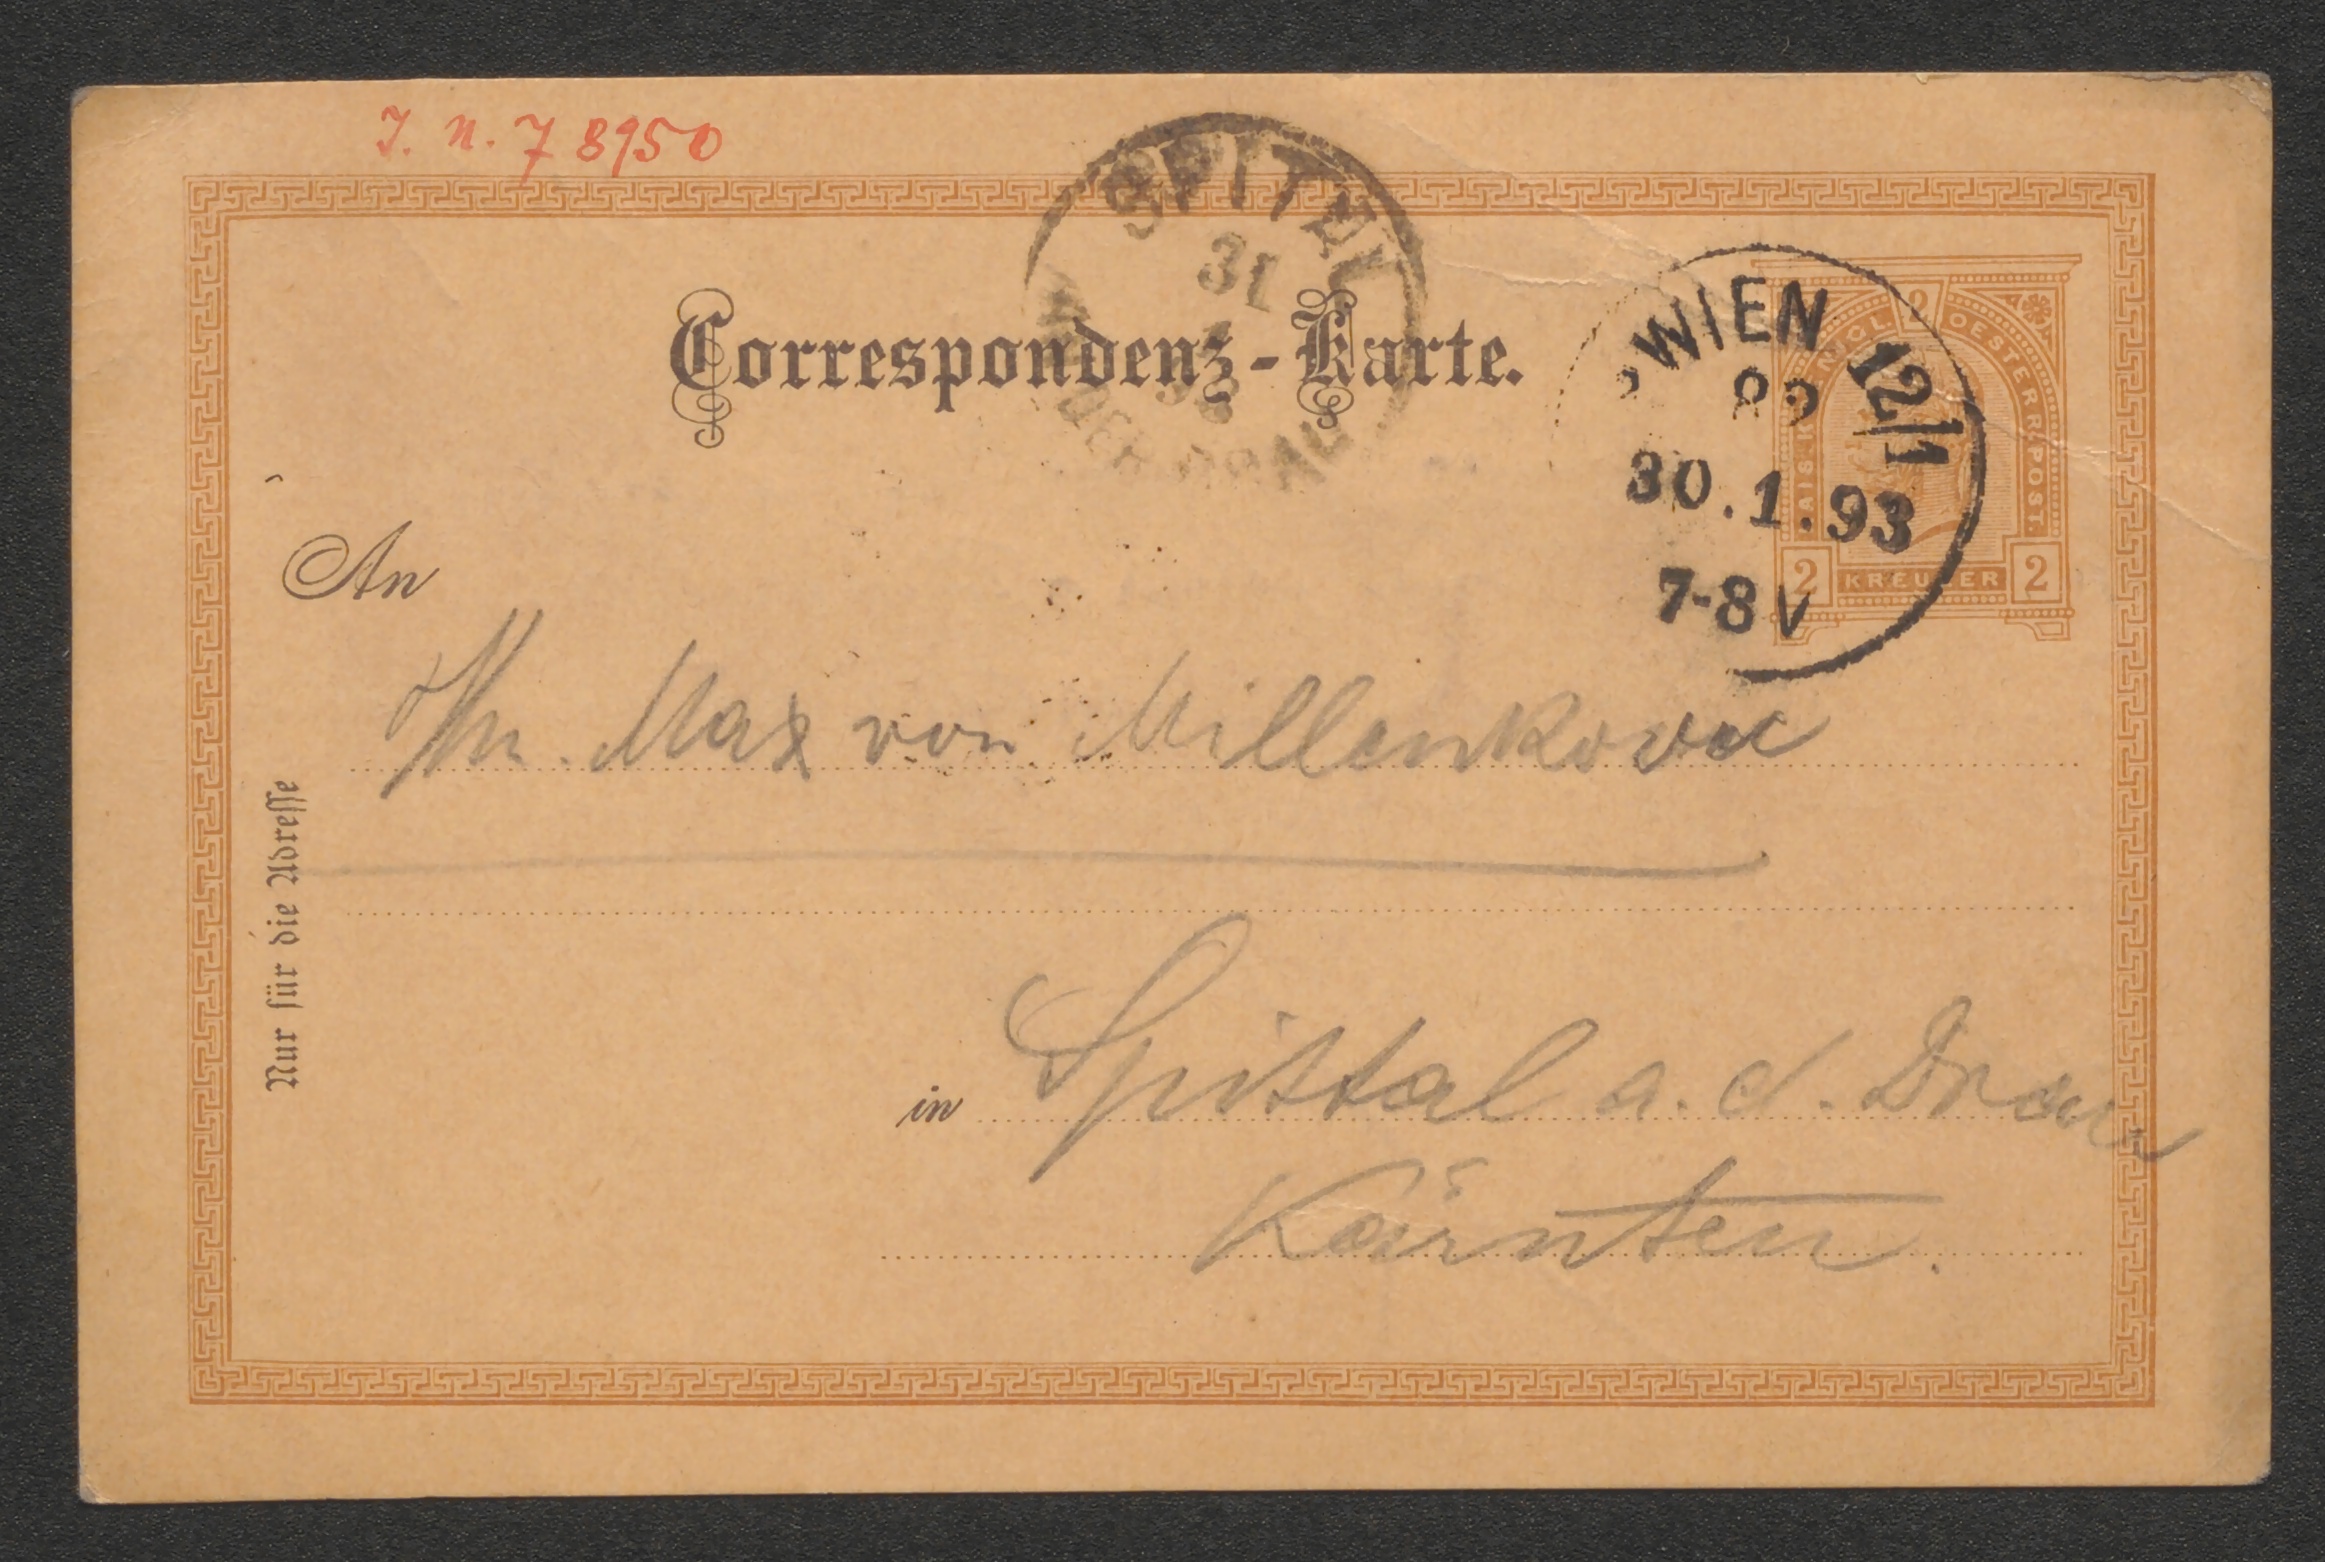 J. N. 78950
SPITTAL
31
1
93
AN DER DRAU
Correspondenz-Karte.
WIEN 12/1
30.1.93
7-8V
KAIS. KÖNIGL. OESTERR. POST.
2
2 KREUZER 2
An
Hn. Max von Millenkovic
Nur für die Adresse
in Spittal a. d. Drau
Kärnten.